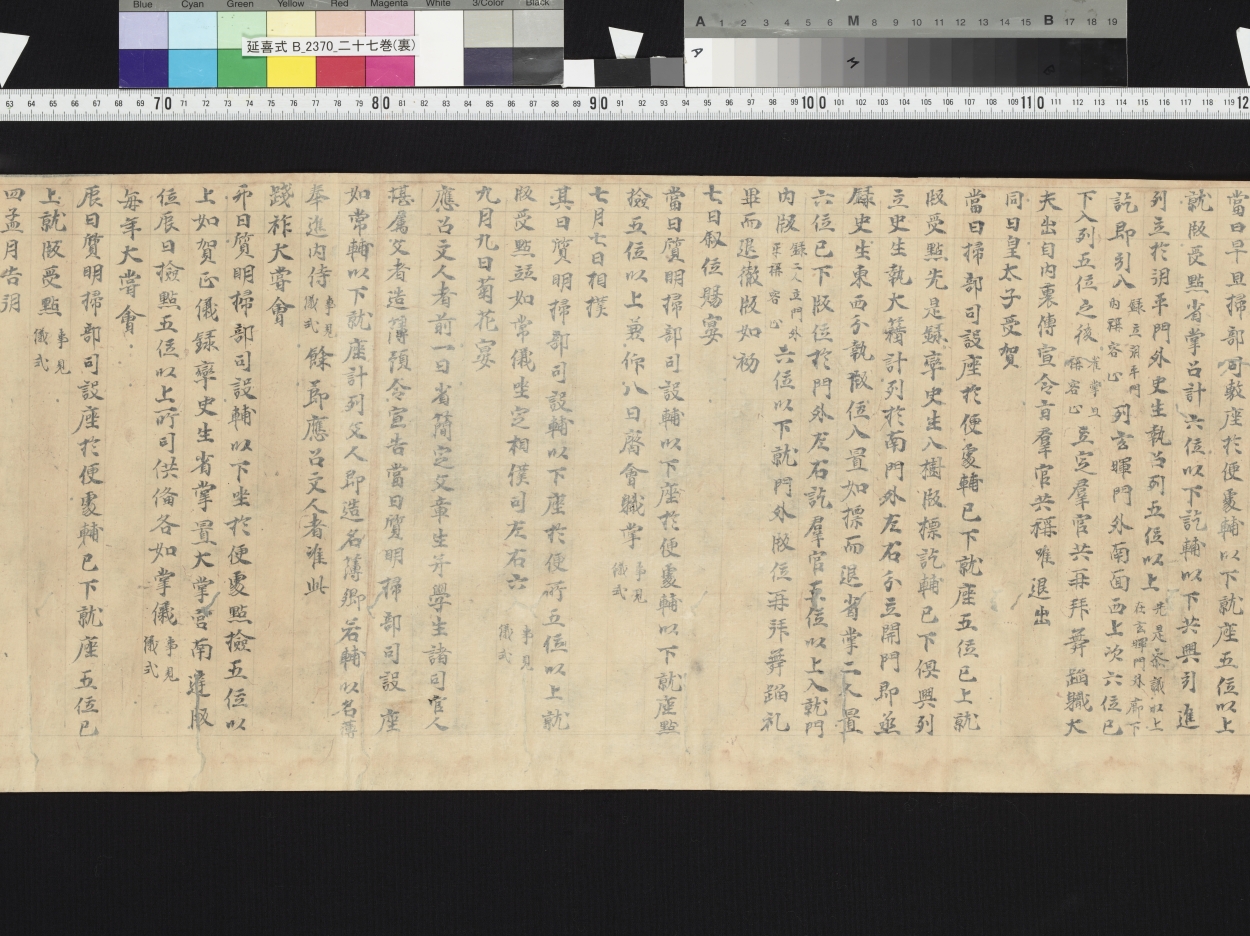 Blue Cyan Green Yellow Red Magenta White 3/Color Black
延喜式 B_2370_二十七巻(裏)
A 1 2 3 4 5 6 M 8 9 10 11 12 13 14 15 B 17 18 19
63 64 65 66 67 68 69 70 71 72 73 74 75 76 77 78 79 80 81 82 83 84 85 86 87 88 89 90 91 92 93 94 95 96 97 98 99 100 101 102 103 104 105 106 107 108 109 110 111 112 113 114 115 116 117 118 119 12
當日早旦掃部司敷座於便處輔以下就座五位以上
就版受點省掌召計六位以下訖輔以下共興引進
列立於朔平門外史生執笏列五位以上先是參議以上在玄暉門外廊下
訖即引入列玄暉門外南面西上次六位已
下入列五位之後立定羣官共再拜舞蹈職大
夫出自内裏傳宣令旨羣官共稱唯退出
同日皇太子受賀
當日掃部司設座於便處輔已下就座五位已上就
版受點先是録率史生入樹版標訖輔已下倶興列
立史生執大籍計列於南門外左右分立開門即並
録史生東西分執散位入置如標而退省掌二人置
六位已下版位於門外左右訖羣官五位以上入就門
内版六位以下就門外版位再拜舞蹈礼
畢而退徹版如初
七日叙位賜宴
當日質明掃部司設輔以下座於便處輔以下就座點
撿五位以上兼仰八日齋會職掌事見儀式
七月七日相撲
其日質明掃部司設輔以下座於便所五位以上就
版受點並如常儀坐定相撲司左右六事見儀式
九月九日菊花宴
應召文人者前一日省簡定文章生并學生諸司官人
堪属文者造簿預令宣告當日質明掃部司設座
如常輔以下就座計列文人即造名簿卿若輔以名簿
奉進内侍事見儀式餘節應召文人者准此
踐祚大嘗會
卯日質明掃部司設輔以下坐於便處點撿五位以
上如賀正儀録率史生省掌置大掌宮南進版
位辰日撿點五位以上所司供俻各如掌儀事見儀式
毎年大嘗會
辰日質明掃部司設座於便處輔已下就座五位已
上就版受點事見儀式
四孟月告朔